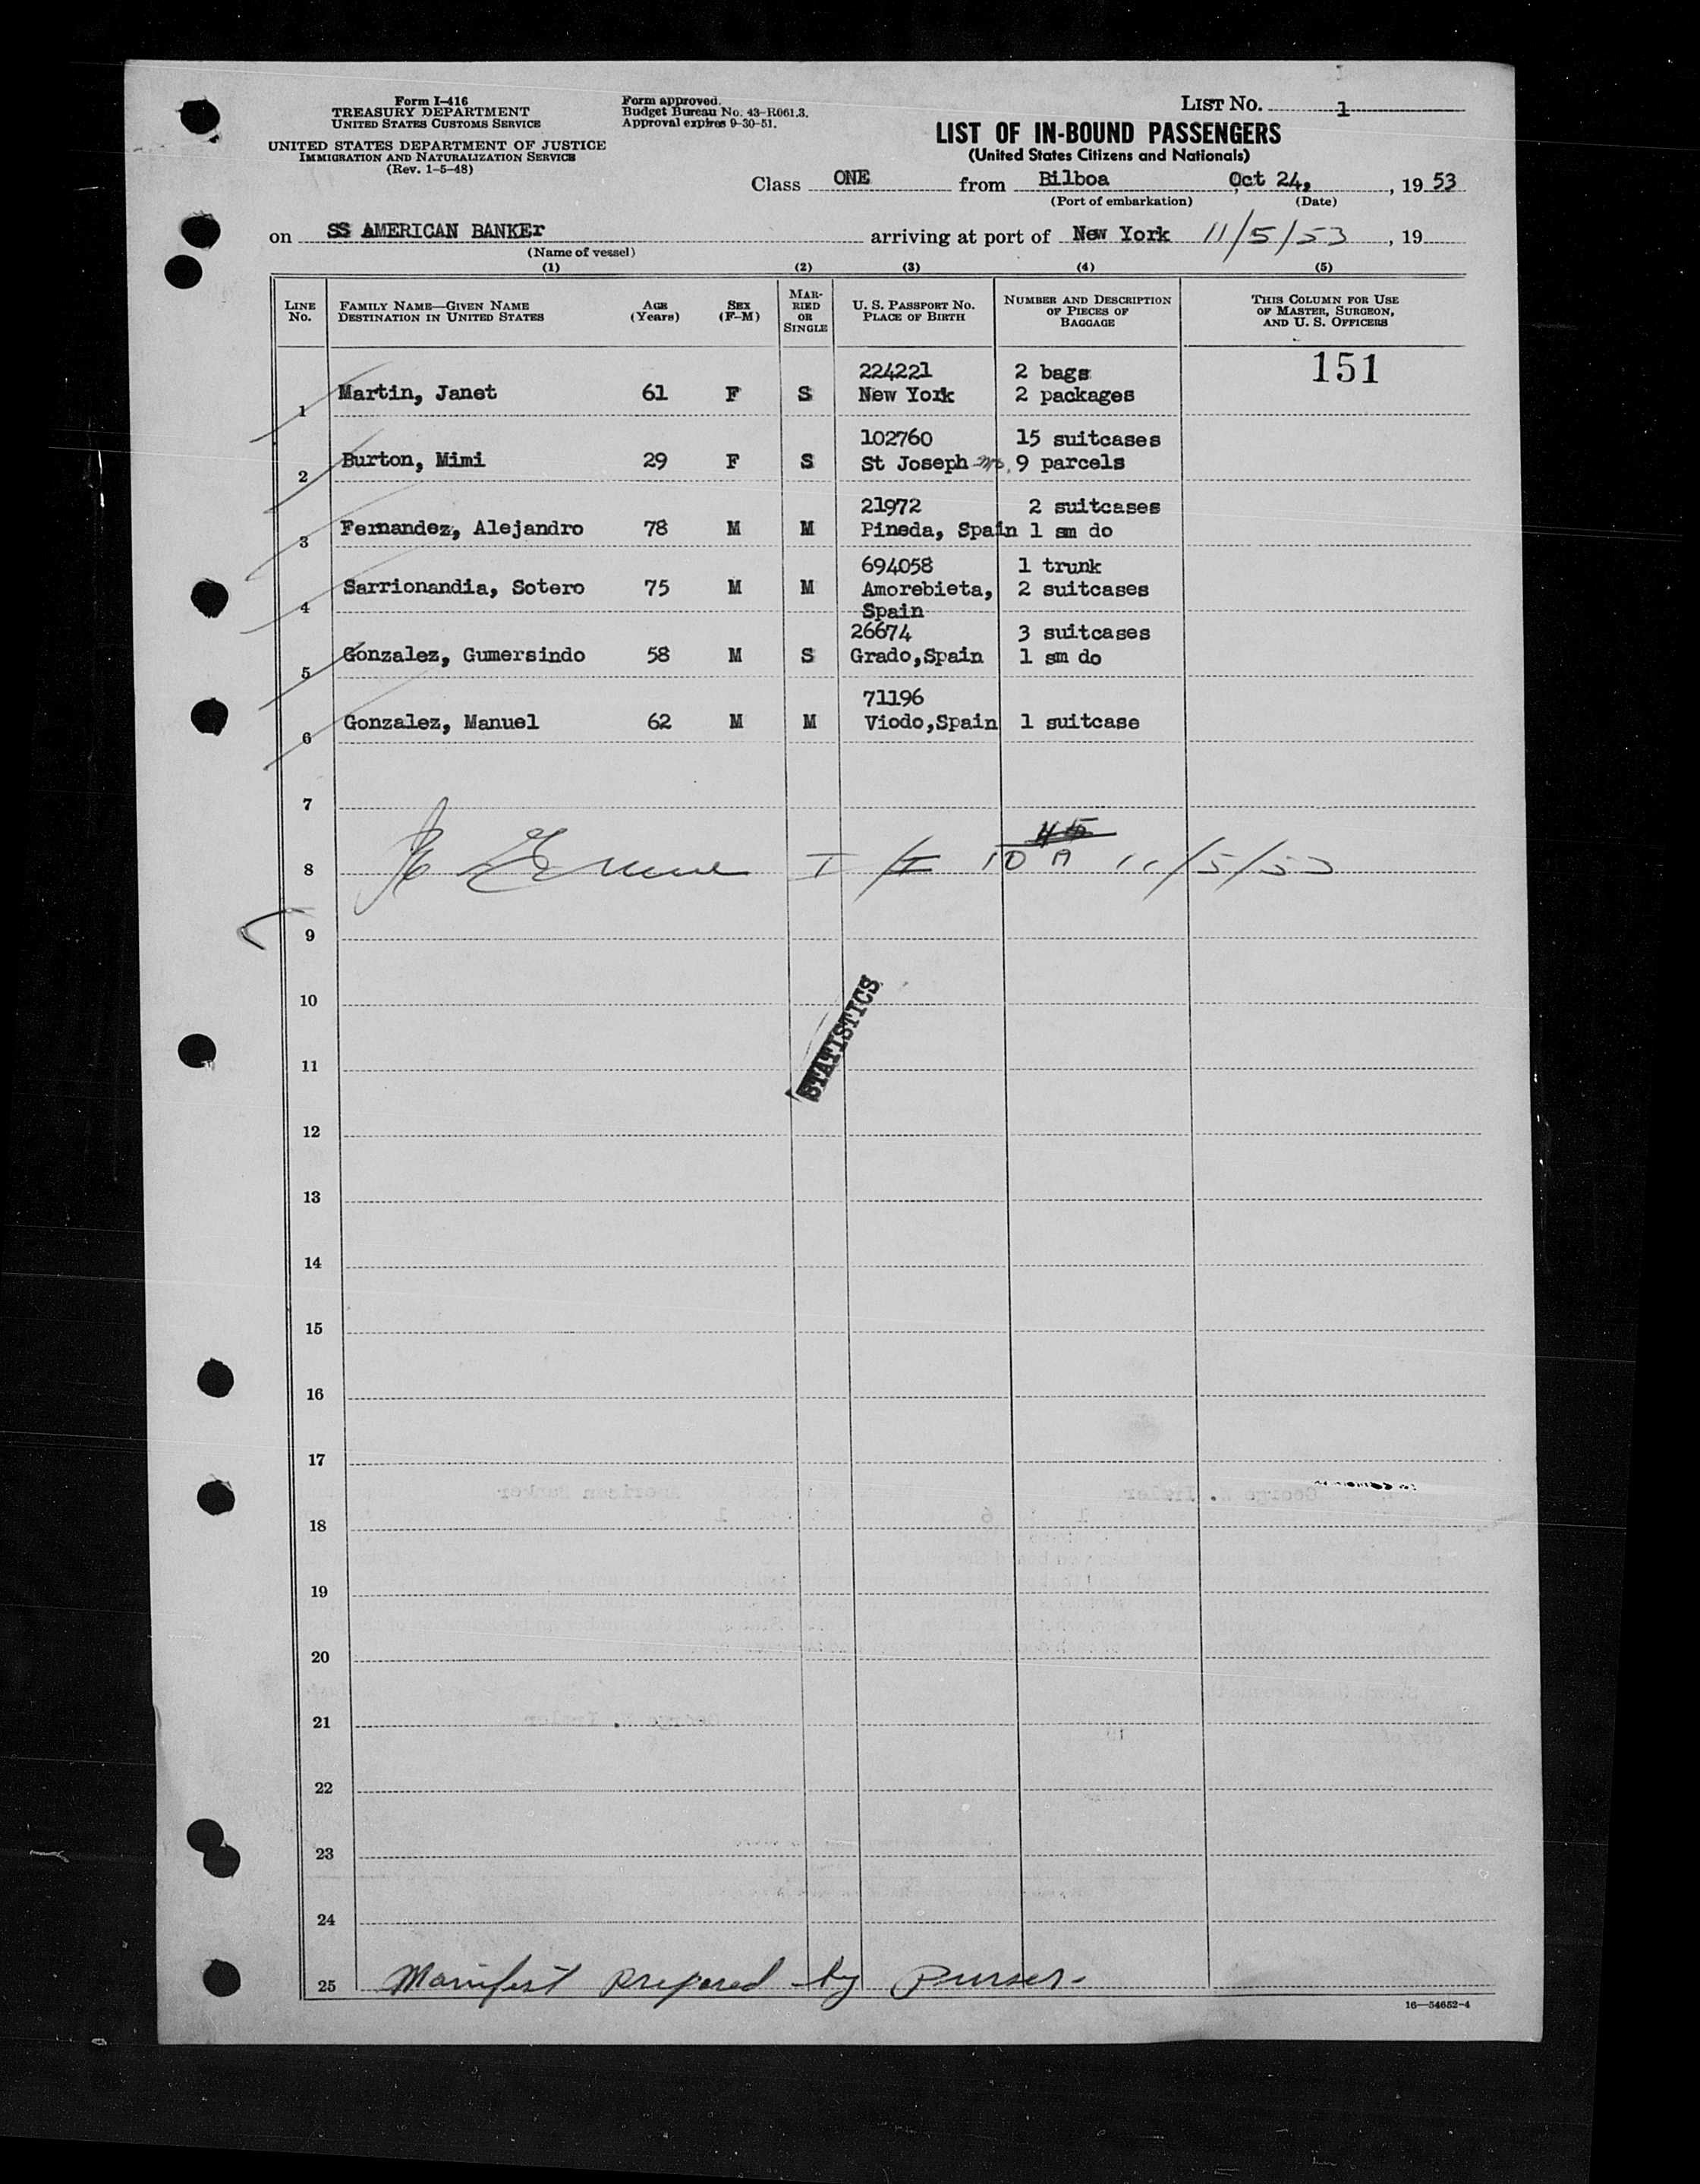 Form I-416
TREASURY DEPARTMENT
UNITED STATES CUSTOMS SERVICE
UNITED STATES DEPARTMENT OF JUSTICE
IMMIGRATION AND NATURALIZATION SERVICE
(Rev. 1-5-48)
Form approved.
Budget Bureau No. 43-R061.3.
Approval expires 9-30-51.
LIST NO. 1
LIST OF IN-BOUND PASSENGERS
(United States Citizens and Nationals)
Class ONE from Bilboa Oct 24, , 19 53
(Port of embarkation) (Date)
on SS AMERICAN BANKEr arriving at port of New York 11/5/53 , 19
(Name of vessel)
(1) (2) (3) (4) (5)
LINE NO.
FAMILY NAME—GIVEN NAME
DESTINATION IN UNITED STATES
AGE (Years)
SEX (F-M)
MARRIED OR SINGLE
U. S. PASSPORT NO.
PLACE OF BIRTH
NUMBER AND DESCRIPTION OF PIECES OF BAGGAGE
THIS COLUMN FOR USE OF MASTER, SURGEON, AND U. S. OFFICERS
151
224221 2 bags
1 Martin, Janet 61 F S New York 2 packages
102760 15 suitcases
2 Burton, Mimi 29 F S St Joseph 9 parcels
21972 2 suitcases
3 Fernandez, Alejandro 78 M M Pineda, Spain 1 sm do
694058 1 trunk
4 Sarrionandia, Sotero 75 M M Amorebieta, 2 suitcases
Spain
26674 3 suitcases
5 Gonzalez, Gumersindo 58 M S Grado,Spain 1 sm do
71196
6 Gonzalez, Manuel 62 M M Viodo,Spain 1 suitcase
7
45
8 10 A 11/5/53
9
10
STATISTICS
11
12
13
14
15
16
17
18
19
20
21
22
23
24
25 Manifest prepared by Purser.
16—54652-4